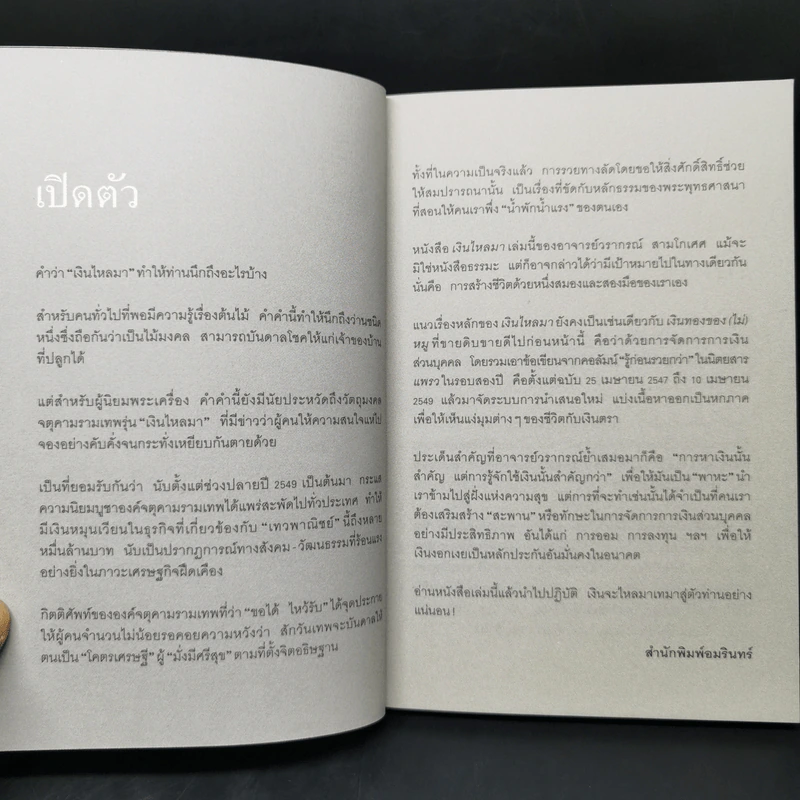 เปิดตัว
คำว่า “เงินไหลมา” ทำให้ท่านนึกถึงอะไรบ้าง
สำหรับคนทั่วไปที่พอมีความรู้เรื่องต้นไม้ คำคำนี้ทำให้นึกถึงว่านชนิด
หนึ่งซึ่งถือกันว่าเป็นไม้มงคล สามารถบันดาลโชคให้แก่เจ้าของบ้าน
ที่ปลูกได้
แต่สำหรับผู้นิยมพระเครื่อง คำคำนี้ยังมีนัยประหวัดถึงวัตถุมงคล
จตุคามรามเทพรุ่น “เงินไหลมา” ที่มีข่าวว่าผู้คนให้ความสนใจแห่ไป
จองอย่างคับคั่งจนกระทั่งเหยียบกันตายด้วย
เป็นที่ยอมรับกันว่า นับตั้งแต่ช่วงปลายปี 2549 เป็นต้นมา กระแส
ความนิยมบูชาองค์จตุคามรามเทพได้แพร่สะพัดไปทั่วประเทศ ทำให้
มีเงินหมุนเวียนในธุรกิจที่เกี่ยวข้องกับ “เทวพาณิชย์” นี้ถึงหลาย
หมื่นล้านบาท นับเป็นปรากฏการณ์ทางสังคม-วัฒนธรรมที่ร้อนแรง
อย่างยิ่งในภาวะเศรษฐกิจฝืดเคือง
กิตติศัพท์ขององค์จตุคามรามเทพที่ว่า “ขอได้ ไหว้รับ” ได้จุดประกาย
ให้ผู้คนจำนวนไม่น้อยรอคอยความหวังว่า สักวันเทพจะบันดาลให้
ตนเป็น “โคตรเศรษฐี” ผู้ “มั่งมีศรีสุข” ตามที่ตั้งจิตอธิษฐาน
ทั้งที่ในความเป็นจริงแล้ว การรวยทางลัดโดยขอให้สิ่งศักดิ์สิทธิ์ช่วย
ให้สมปรารถนานั้น เป็นเรื่องที่ขัดกับหลักธรรมของพระพุทธศาสนา
ที่สอนให้คนเราพึ่ง “น้ำพักน้ำแรง” ของตนเอง
หนังสือ เงินไหลมา เล่มนี้ของอาจารย์วรากรณ์ สามโกเศศ แม้จะ
มิใช่หนังสือธรรมะ แต่ก็อาจกล่าวได้ว่ามีเป้าหมายไปในทางเดียวกัน
นั่นคือ การสร้างชีวิตด้วยหนึ่งสมองและสองมือของเราเอง
แนวเรื่องหลักของ เงินไหลมา ยังคงเป็นเช่นเดียวกับ เงินทองของ (ไม่)
หมู ที่ขายดิบขายดีไปก่อนหน้านี้ คือว่าด้วยการจัดการการเงิน
ส่วนบุคคล โดยรวมเอาข้อเขียนจากคอลัมน์ “รู้ก่อนรวยกว่า” ในนิตยสาร
แพรว ในรอบสองปี คือตั้งแต่ฉบับ 25 เมษายน 2547 ถึง 10 เมษายน
2549 แล้วมาจัดระบบการนำเสนอใหม่ แบ่งเนื้อหาออกเป็นหกภาค
เพื่อให้เห็นแง่มุมต่างๆ ของชีวิตกับเงินตรา
ประเด็นสำคัญที่อาจารย์วรากรณ์ย้ำเสมอมาก็คือ “การหาเงินนั้น
สำคัญ แต่การรู้จักใช้เงินนั้นสำคัญกว่า” เพื่อให้มันเป็น “พาหะ” นำ
เราข้ามไปสู่ฝั่งแห่งความสุข แต่การที่จะทำเช่นนั้นได้จำเป็นที่คนเรา
ต้องเสริมสร้าง “สะพาน” หรือทักษะในการจัดการการเงินส่วนบุคคล
อย่างมีประสิทธิภาพ อันได้แก่ การออม การลงทุน ฯลฯ เพื่อให้
เงินงอกเงยเป็นหลักประกันอันมั่นคงในอนาคต
อ่านหนังสือเล่มนี้แล้วนำไปปฏิบัติ เงินจะไหลมาเทมาสู่ตัวท่านอย่าง
แน่นอน!
สำนักพิมพ์อมรินทร์